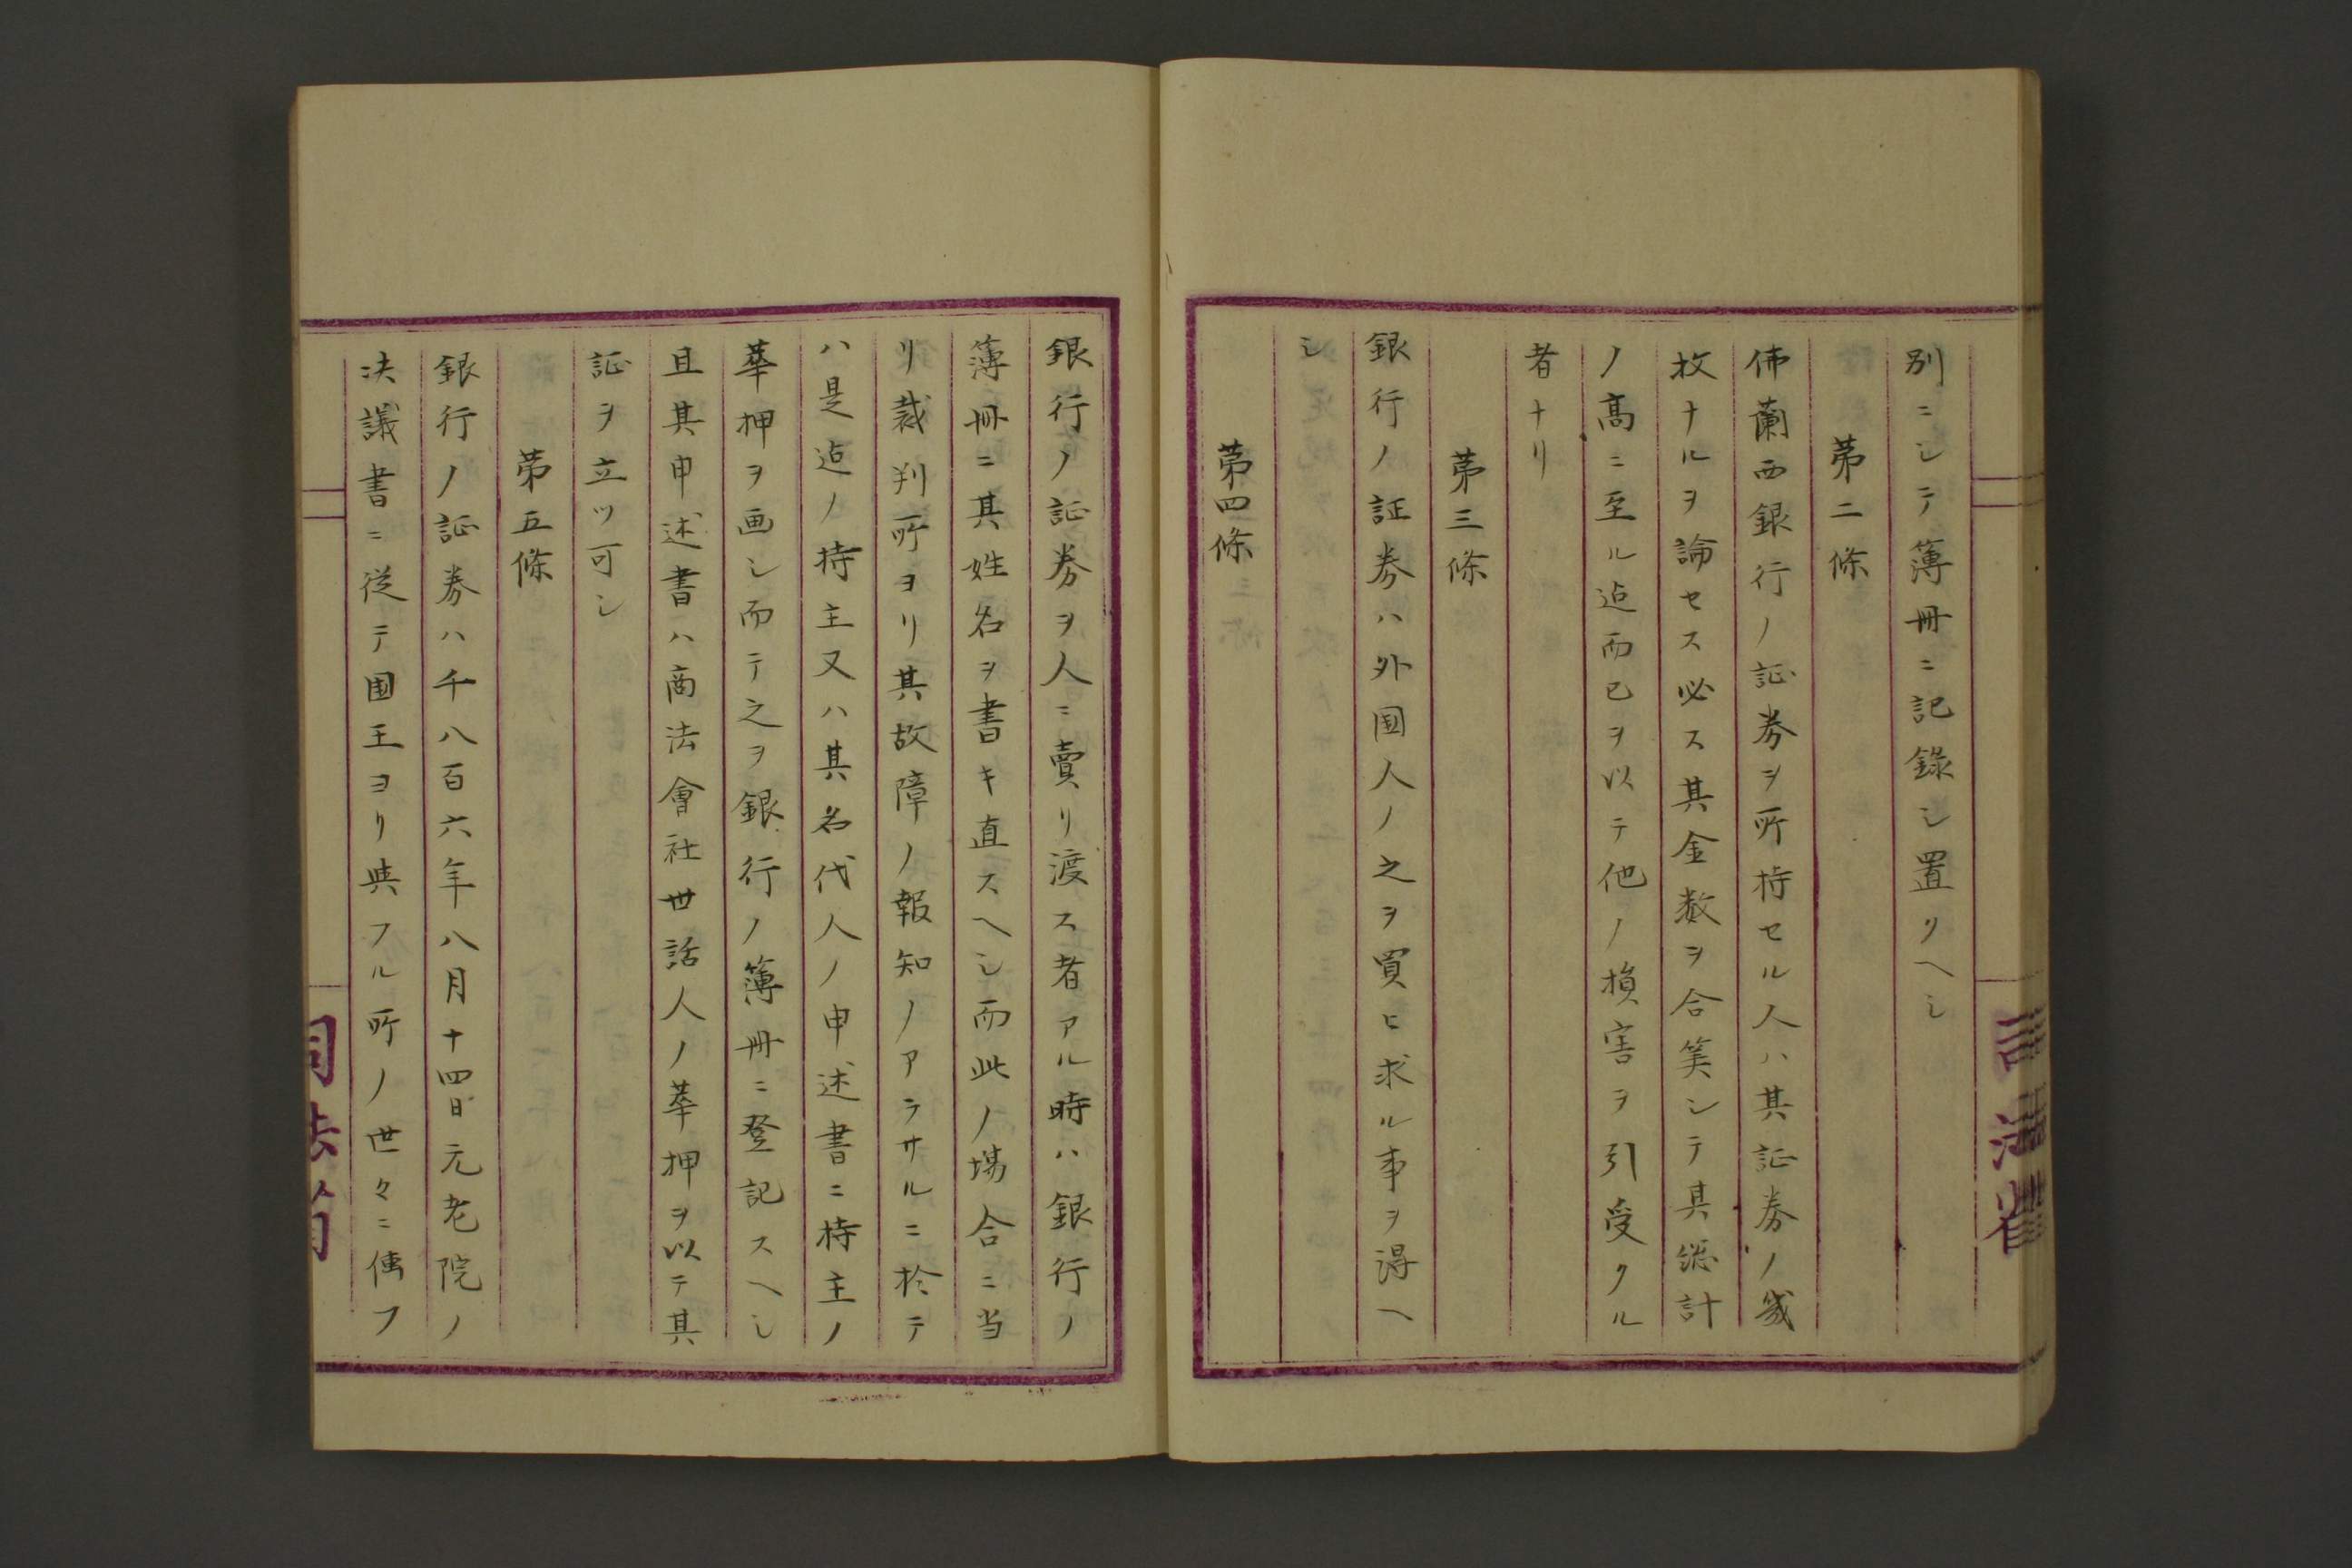 別ニシテ簿冊ニ記錄シ置リヘシ
第二條
佛蘭西銀行ノ証券ヲ所持セル人ハ其証券ノ幾
枚ナルヲ論セス必ス其金数ヲ合筭シテ其総計
ノ髙ニ至ル迠而已ヲ以テ他ノ損害ヲ引受クル
者ナリ
第三條
銀行ノ証券ハ外国人ノ之ヲ買ヒ求ル事ヲ得ヘ
シ
第四條
銀行ノ証券ヲ人ニ賣リ渡ス者アル時ハ銀行ノ
簿冊ニ其姓名ヲ書キ直スヘシ而此ノ塲合ニ当
リ裁判所ヨリ其故障ノ報知ノアラサルニ於テ
ハ是迠ノ持主又ハ其名代人ノ申述書ニ持主ノ
華押ヲ画シ而テ之ヲ銀行ノ簿冊ニ登記スヘシ
且其申述書ハ商法會社世話人ノ華押ヲ以テ其
証ヲ立ツ可シ
第五條
銀行ノ証券ハ千八百六年八月十四日元老院ノ
决議書ニ從テ国王ヨリ與フル所ノ世々ニ傳フ
司法省